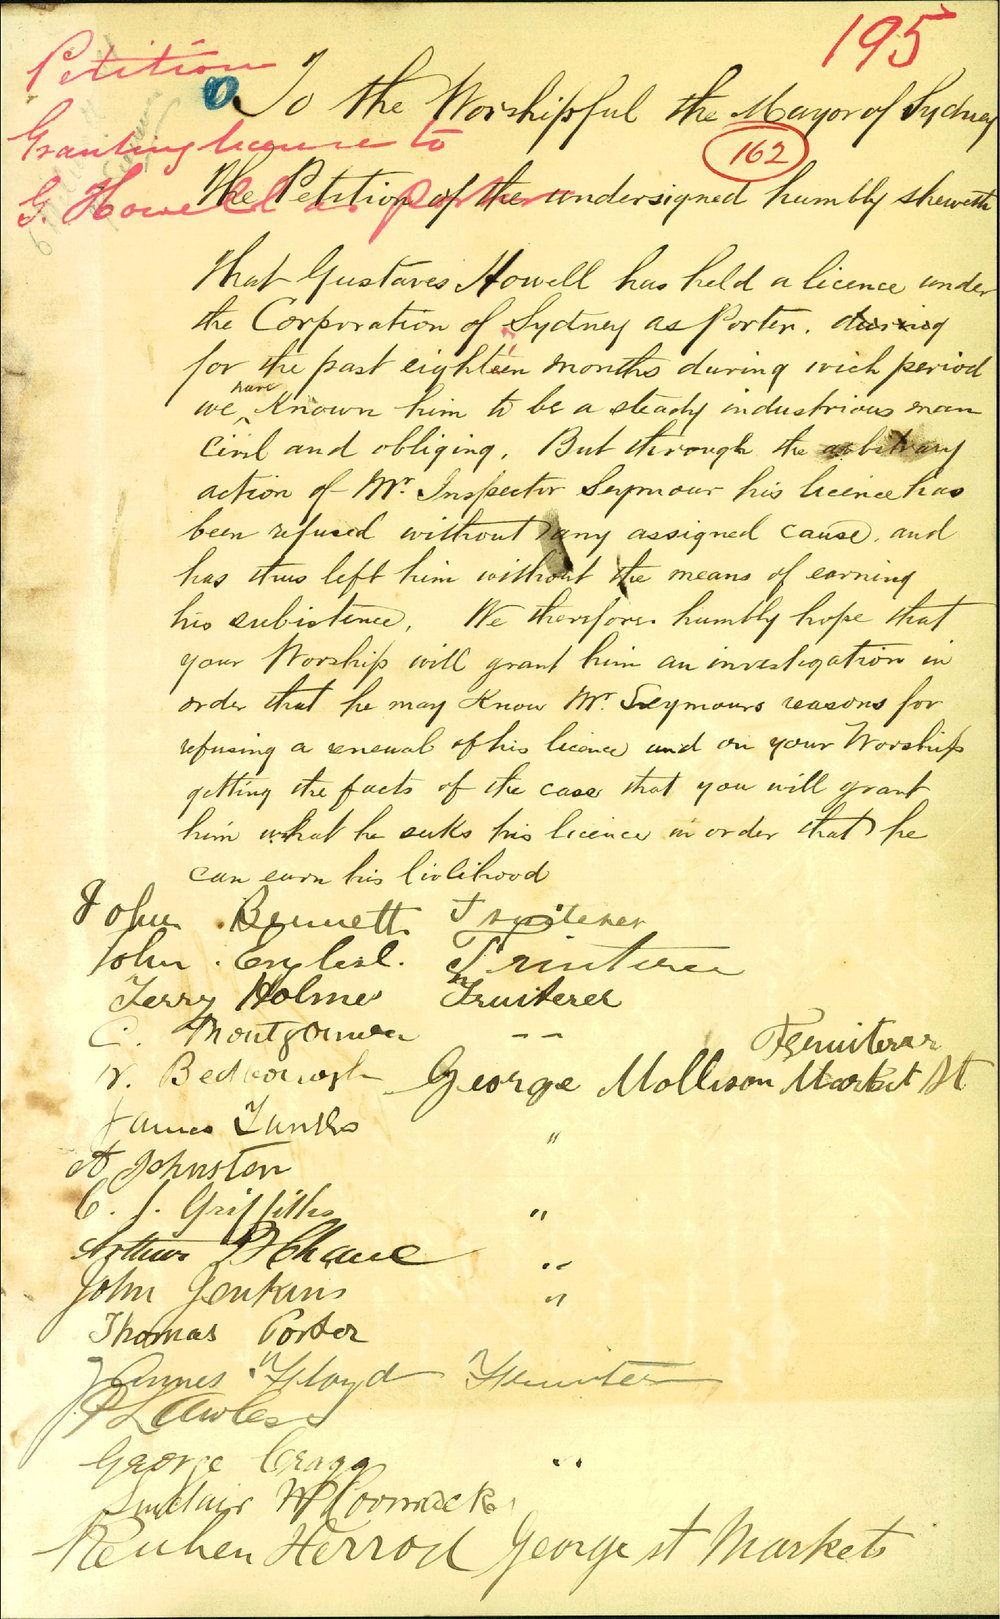 195
Petition
Granting license to
G. Howell as porter
To the Worshipful the Mayor of Sydney
162
The Petition of the undersigned humbly sheweth
That Gustaves Howell has held a licence under
the Corporation of Sydney as Porter. during
for the past eighteen months during wich period
we have known him to be a steady industrious man
Civil and obliging. But through the arbitrary
action of Mr. Inspector Seymour his licence has
been refused without any assigned cause. and
has thus left him without the means of earning
his subistence. We therefore humbly hope that
your Worship will grant him an investigation in
order that he may Know Mr. Seymours reasons for
refusing a renewal of his licence and on your Worship
getting the facts of the case that you will grant
him what he seeks his licence in order that he
can earn his livlihood
John Bennett Fruiterer
John English. Fruiterer
Terry Holmes Fruiterer
C. Montgomery --
Fruiterer
W. Bedborough George Mollison Market St
James Hanks "
A Johnston
C. J. Griffiths "
Arthur Chane "
John Jenkins "
Thomas Porter
James Floyd Fruiterer
J. P Lawless
George Cragg "
Sinclair McCormick
Reuben Herrod George st Markets